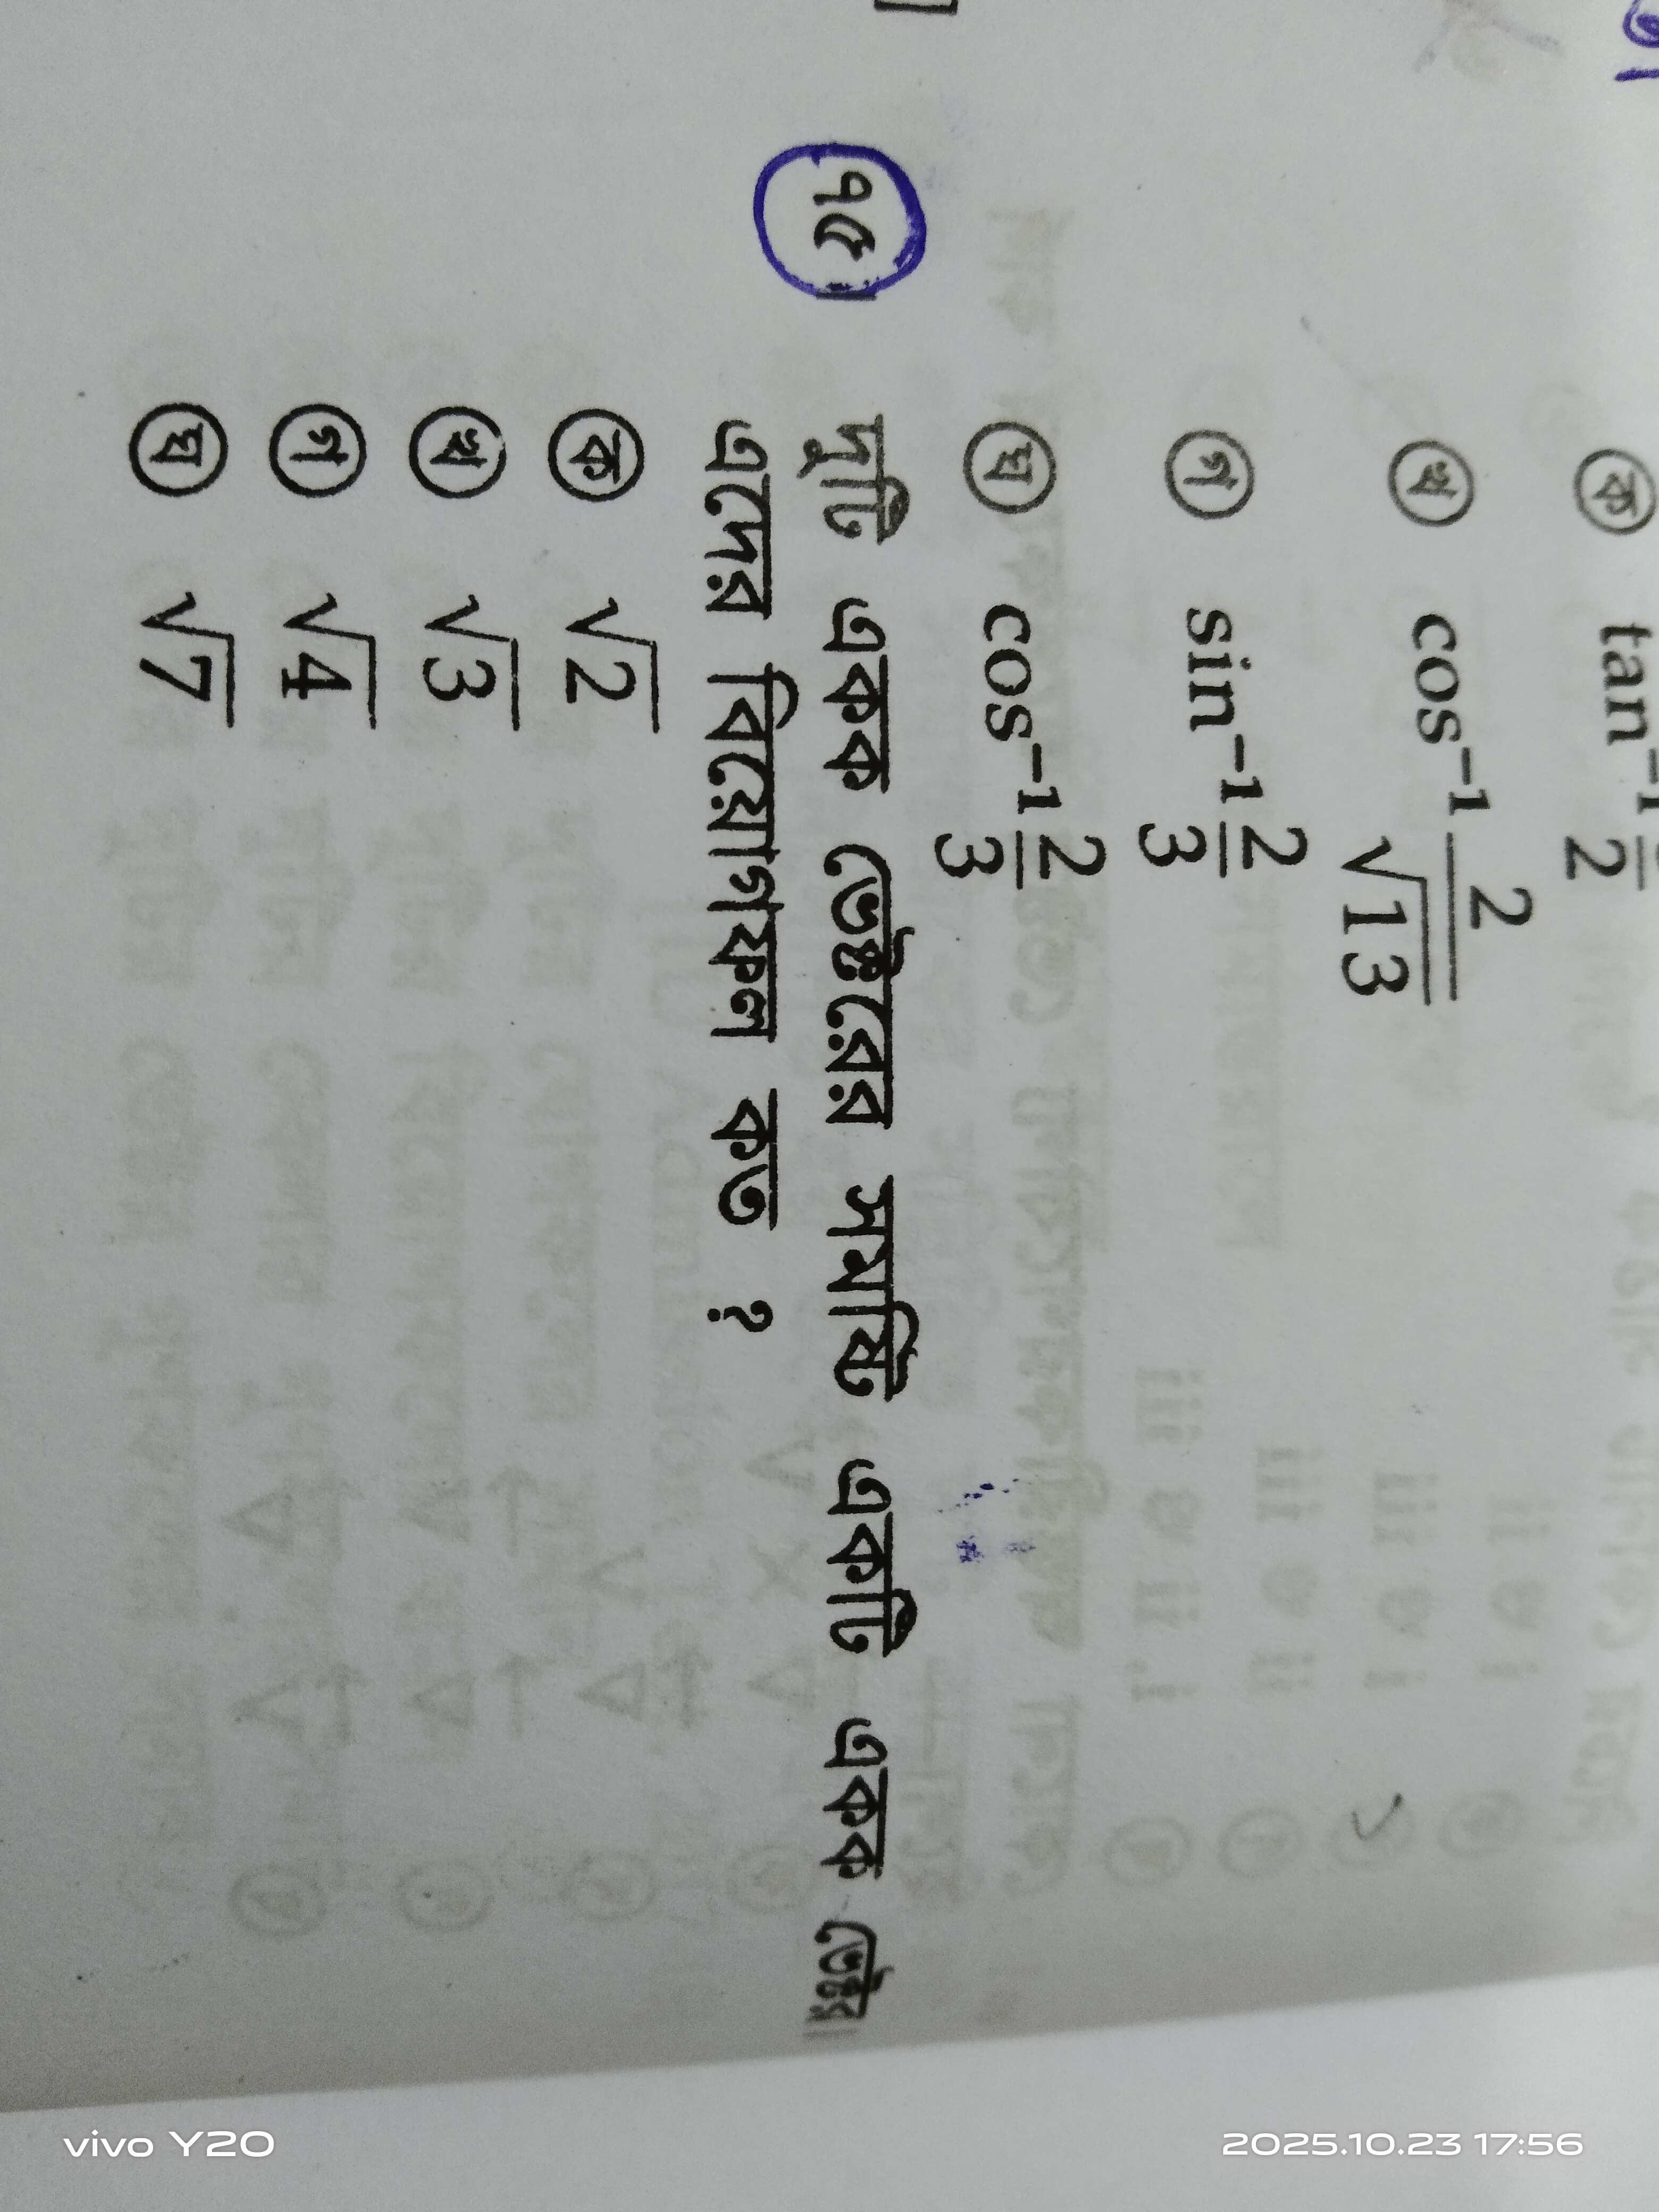 ক tan⁻¹ /2
খ cos⁻¹ 2/√13
গ sin⁻¹ 2/3
ঘ cos⁻¹ 2/3
৭৫। দুটি একক ভেক্টরের সমষ্টি একটি একক ভেক্টর।
এদের বিয়োগফল কত ?
ক √2
খ √3
গ √4
ঘ √7
vivo Y20
2025.10.23 17:56